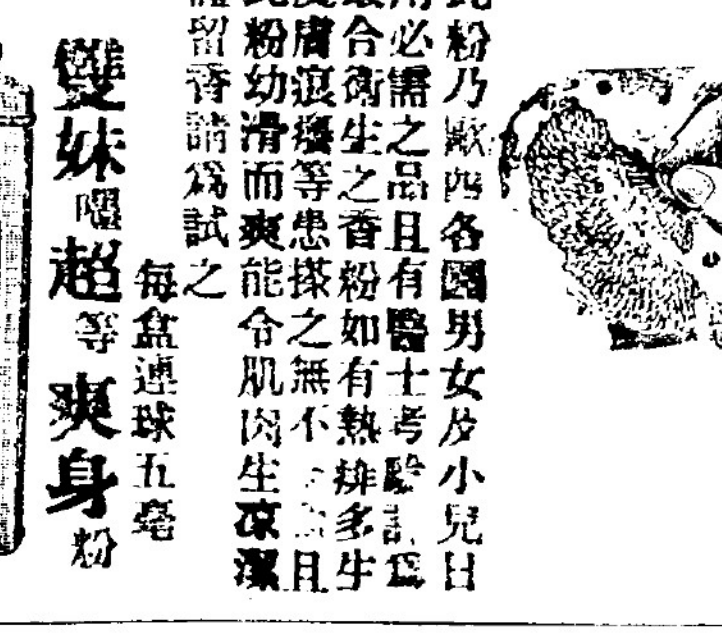 粉乃歐西各國男女及小兒日
用必需之品且有醫士考驗訂爲
合衛生之香粉如有熱痱多生
膚痕癢等患搽之無不且
粉幼滑而爽能令肌肉生凉潔
留香請爲試之
每盒連球五毫
雙妹嚜超等爽身粉